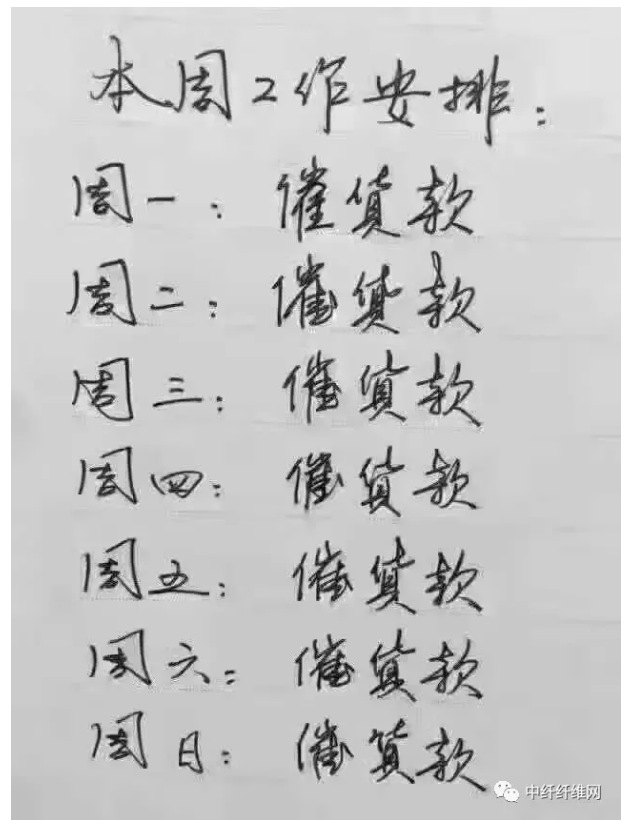 本周工作安排：
周一：催货款
周二：催货款
周三：催货款
周四：催货款
周五：催货款
周六：催货款
周日：催货款
中纤纤维网